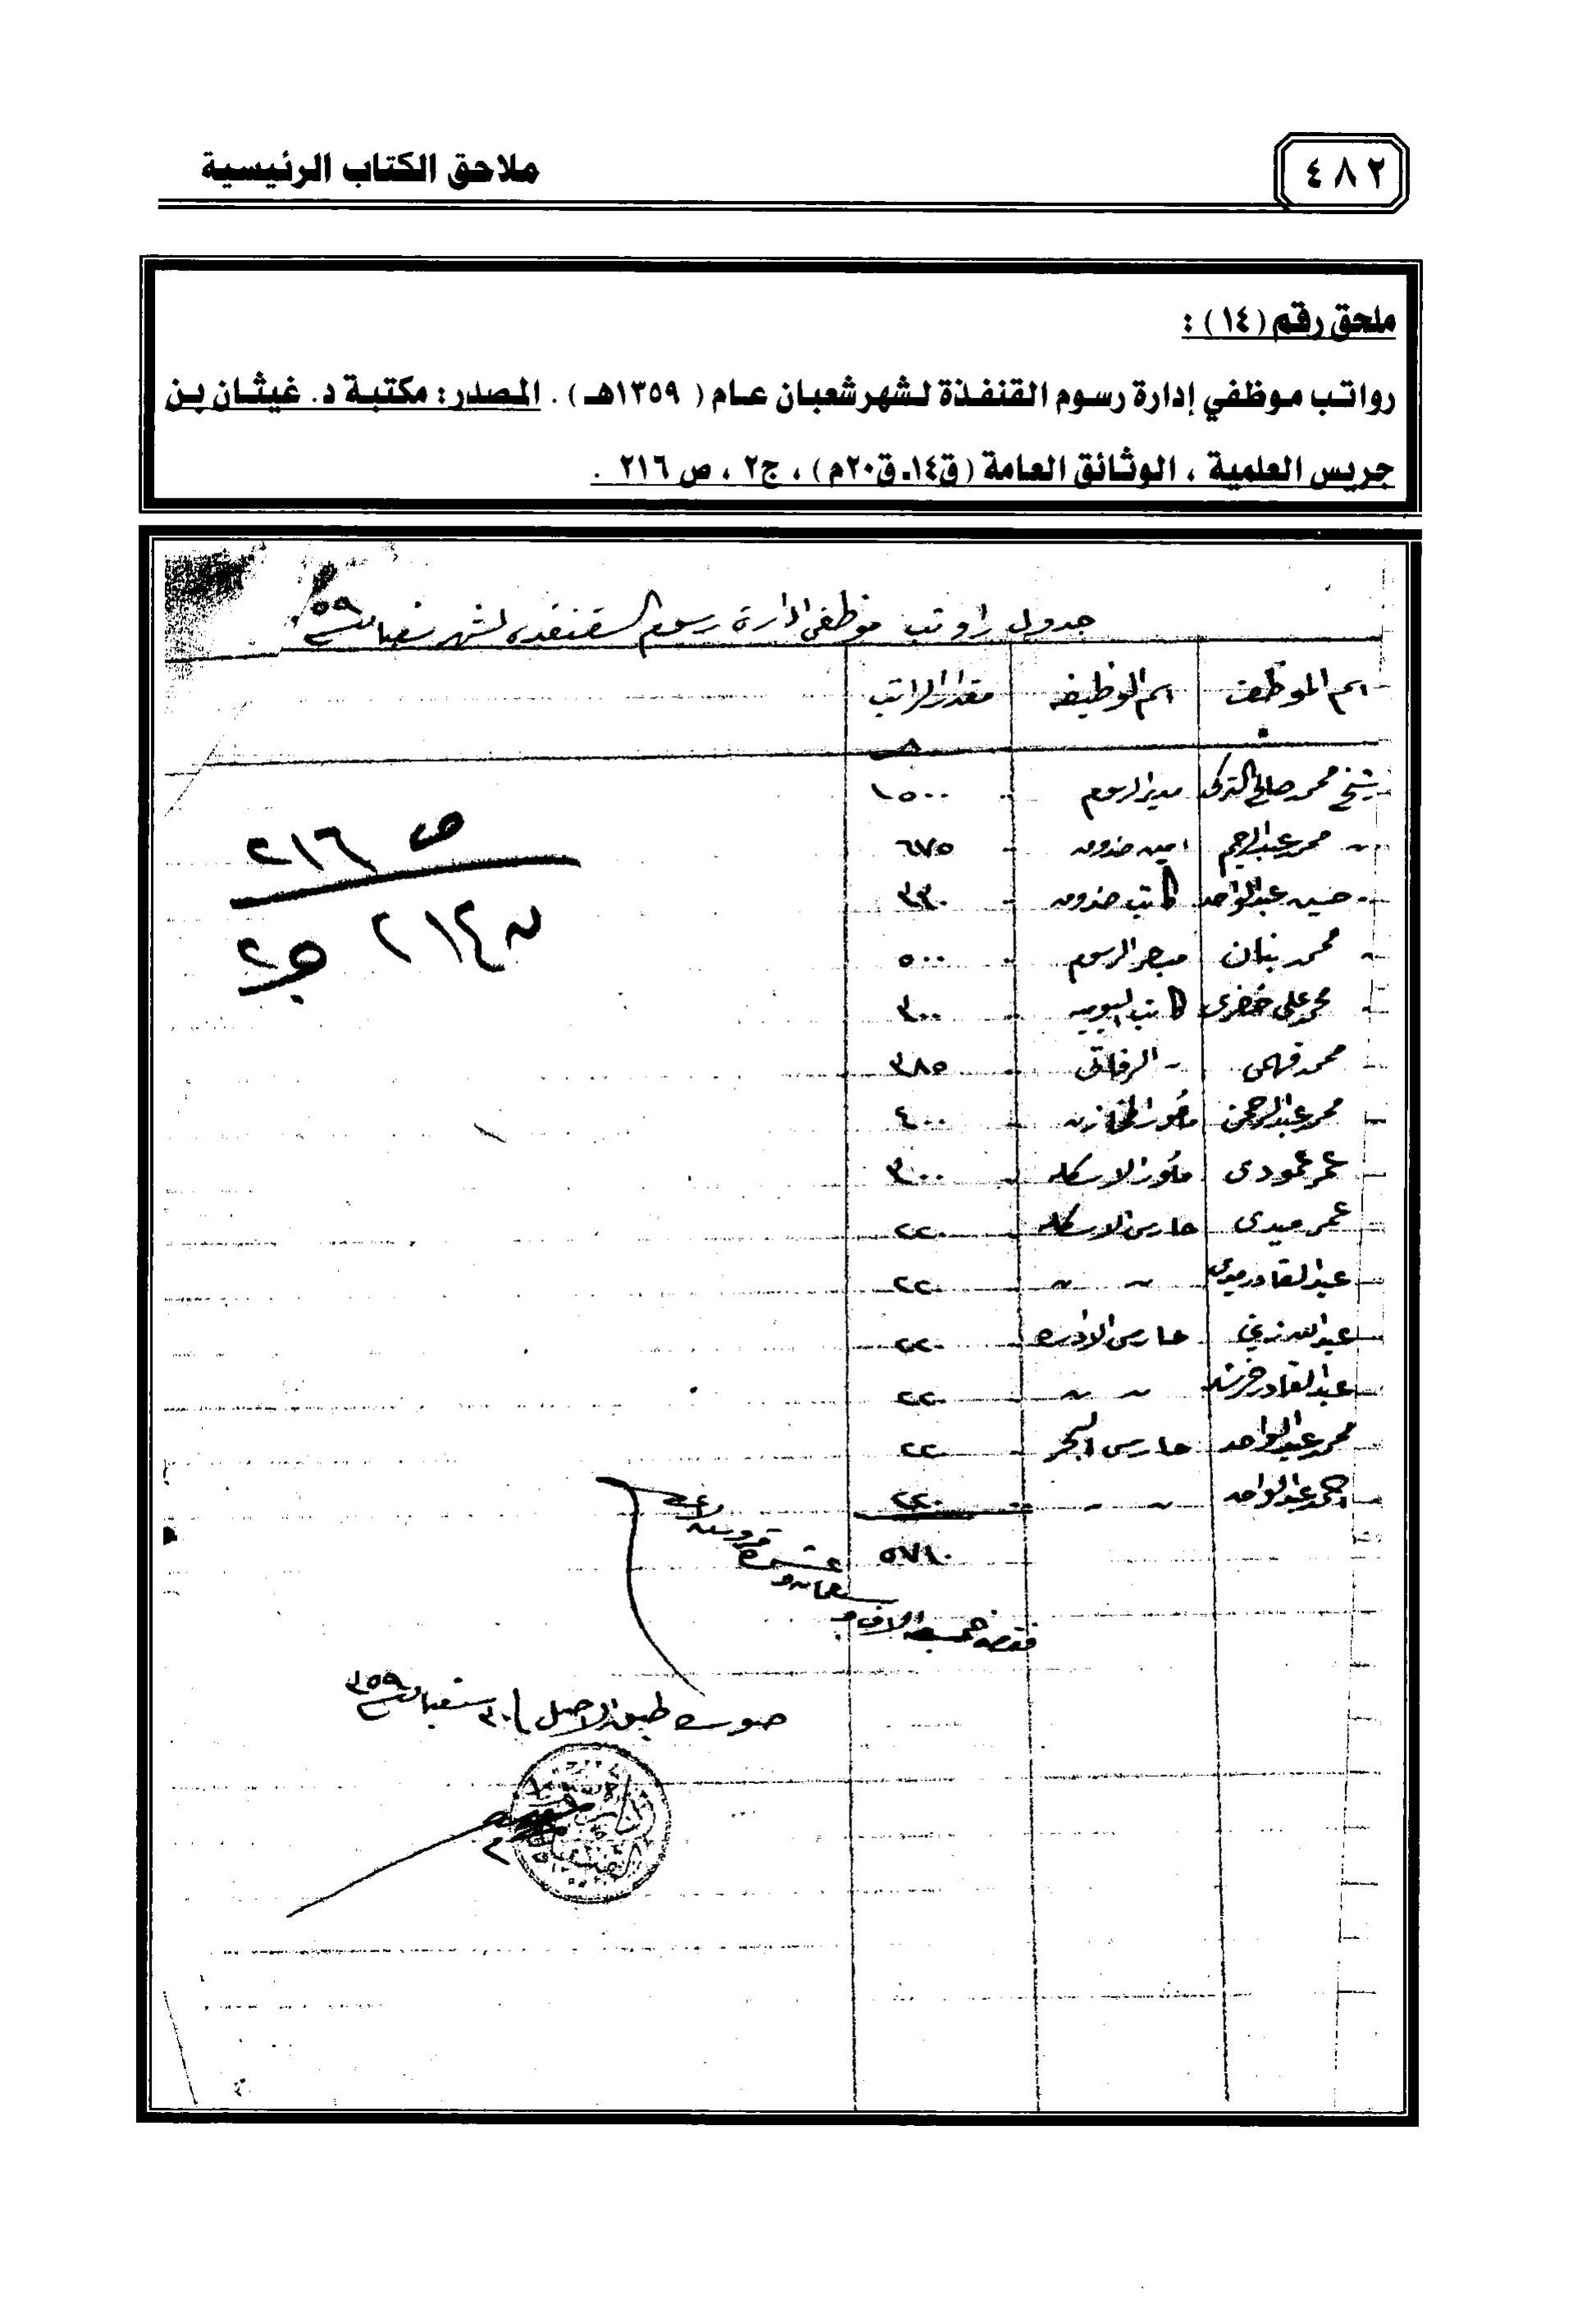 ملاحق الكتاب الرئيسية
٤٨٢
ملحق رقم (١٤) :
رواتب موظفي إدارة رسوم القنفذة لشهر شعبان عام ( ١٣٥٩هـ ) . المصدر: مكتبة د. غيثان بن
جريس العلمية ، الوثائق العامة (ق١٤ـ ق٢٠م) ، ج٢ ، ص ٢١٦ .
جدول راوتب موظفى ادارة رسوم القنفده لشهر شعبان سنة ٥٩
اسم الموظف اسم الوظيفه مقدار الراتب
شيخ محمد صالح التركى مدير الرسوم ١٥٠٠
محمد عبدالرحيم امين صندوق ٦٧٥
حسين عبدالواحد كاتب صندوق ٣٣٠
محمد بنان الرسوم ٥٠٠
محمد على خضرى كاتب اليوميه ٣٠٠
محمد فهمى ٣٨٥
محمد عبدالرحمن مأمور المخازن ٤٠٠
عمر عمودى مأمور الاسكله ٣٠٠
عمر ميدى حارس الاسكله ٢٢٠
عبدالقادر ميدى " " ٢٢٠
عبدالله حارس الاداره ٢٢٠
عبدالقادر " " ٢٢٠
محمد عبدالواحد حارس البحر ٢٢٠
احمد عبدالواحد " " ٢٢٠
٥٧١٠
فقط خمسة الاف و
سبعمائة و
عشرة
قروش
صورة طبق الاصل ٣٠ شعبان سنة ٣٥٩
ص ٢١٦
٢١٤
ج٢